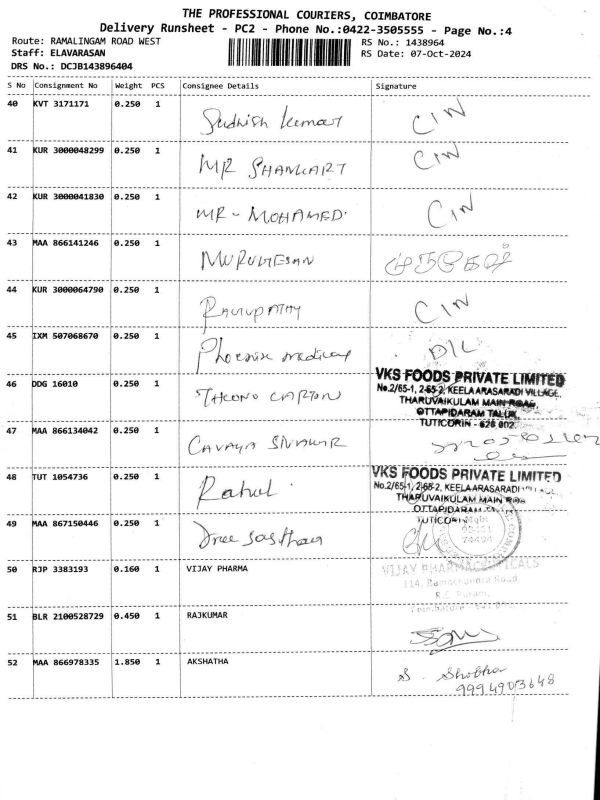 THE PROFESSIONAL COURIERS, COIMBATORE
Delivery Runsheet - PC2 - Phone No.:0422-3505555 - Page No.:4
Route: RAMALINGAM ROAD WEST
RS No.: 1438964
Staff: ELAVARASAN
RS Date: 07-Oct-2024
DRS No.: DCJB143896404
S No Consignment No Weight PCS Consignee Details Signature
40 KVT 3171171 0.250 1 Sudhish Kumar CIN
41 KUR 3000048299 0.250 1 MR SHANKART CIN
42 KUR 3000041830 0.250 1 MR - MOHAMED. CIN
43 MAA 866141246 0.250 1 MURUGESAN முருகேஷ்
44 KUR 3000064790 0.250 1 CIN
45 IXM 507068670 0.250 1 Phoenix medical D/L
VKS FOODS PRIVATE LIMITED
No.2/65-1, 2-65-2, KEELAARASARADI VILLAGE,
46 DDG 16010 0.250 1
THARUVAIKULAM MAIN ROAD,
OTTAPIDARAM TALUK,
TUTICORIN - 628 002.
47 MAA 866134042 0.250 1
VKS FOODS PRIVATE LIMITED
48 TUT 1054736 0.250 1 Rahul.
No.2/65-1, 2/65-2, KEELAARASARADI
THARUVAIKULAM MAIN ROA
OTTAPIDARAM
TUTICORIN
49 MAA 867150446 0.250 1 Sree Sasthaa
50 RJP 3383193 0.160 1 VIJAY PHARMA
VIJAY PHARMACEUTICALS
114, Ramachandra Road,
R.S. Puram,
Coimbatore
51 BLR 2100528729 0.450 1 RAJKUMAR
52 MAA 866978335 1.850 1 AKSHATHA S. Shobha
9994903648